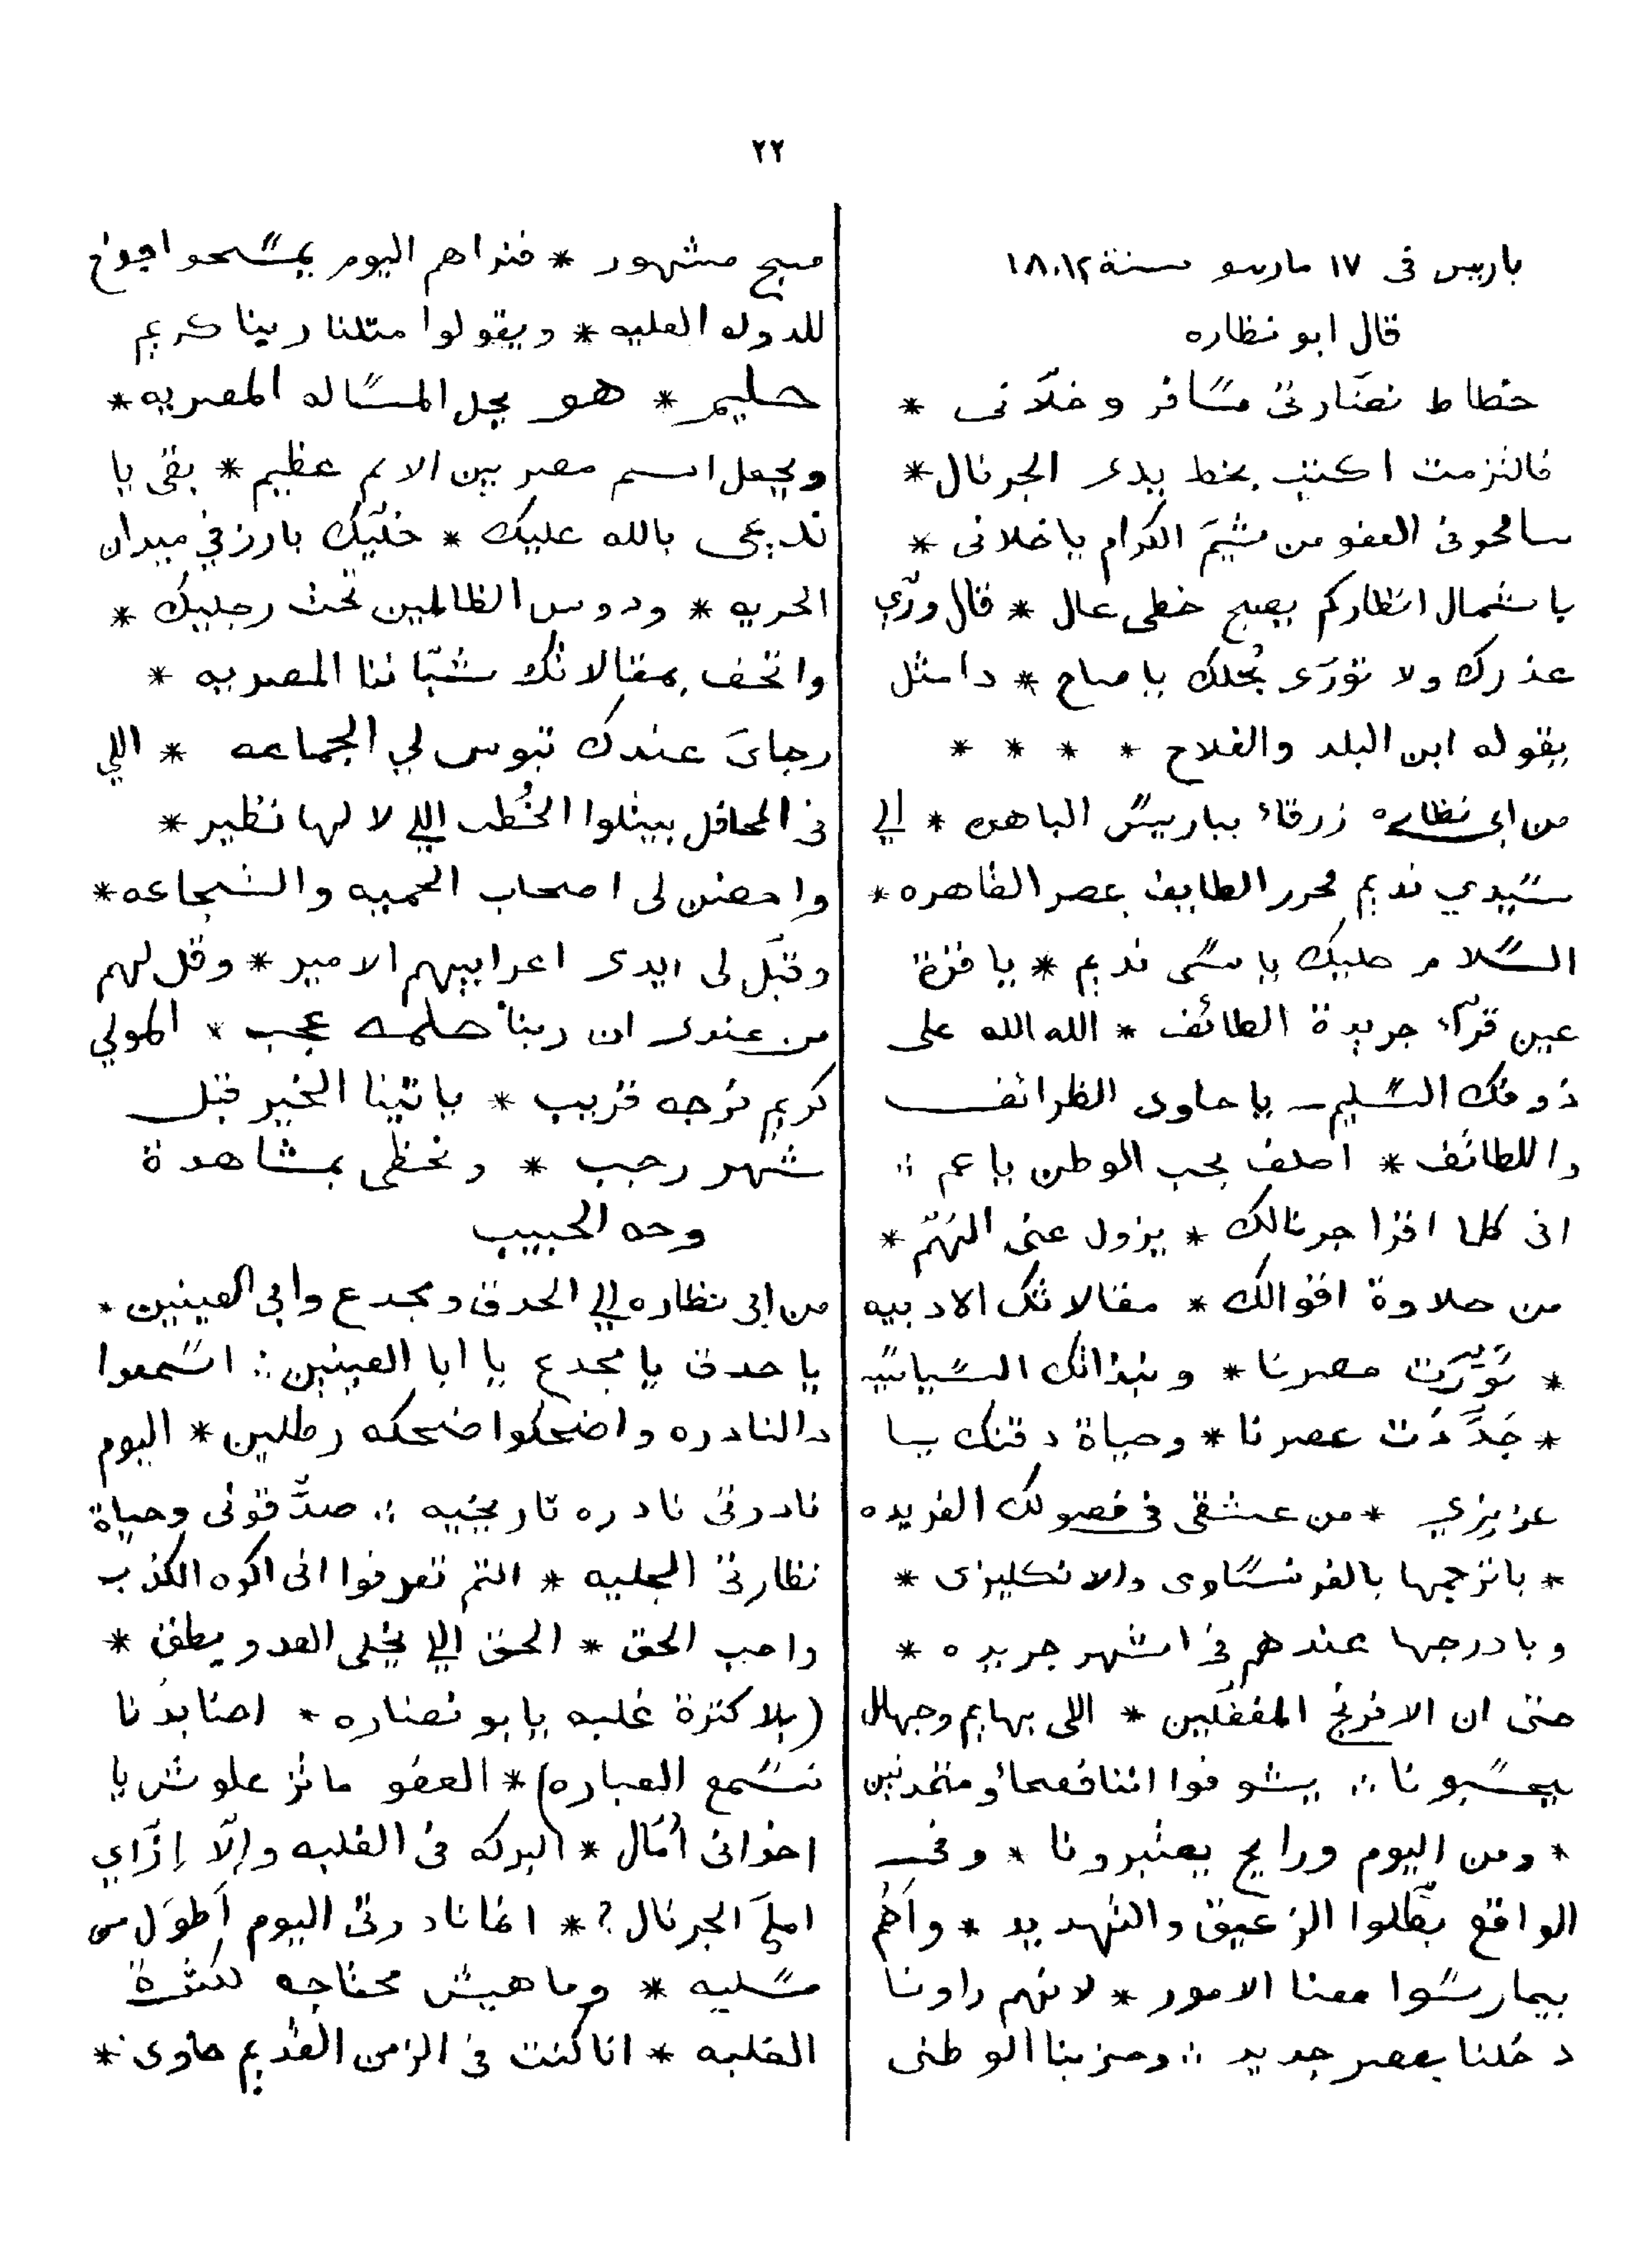 ٢٢
باريس فى ١٧ مارسو سنة ١٨٨٢
قال ابو نظاره
خطاط نضّارتى مسافر وخلّانى *
فالتزمت اكتب بخط يدى الجرنال *
سامحونى العفو من شيَم الكرام ياخلانى *
باشمال انظاركم يصبح خطى عال * قال ورّي
عذرك ولا تورّى بُخلك ياصاح * دا مثل
يقوله ابن البلد والفلاح * * * *
من ابى نظاره زرقاء بباريس الباهره * الي
سيدي نديم محرر الطايف بمصر القاهره *
السلام عليك ياسى نديم * ياقرة
عين قرّاء جريدة الطائف * الله الله على
ذوقك السليم ياحاوى الظرائف
واللطائف * احلف بحب الوطن ياعم ∴
انى كلما اقرا جرنالك * يزول عنى الهَمّ *
من حلاوة اقوالك * مقالاتك الادبيه
* نَوّرَت مصرنا * ونبذاتك السياسيّه
* جَدَّدَت عصرنا * وحياة دقنك يا
عزيزي * من عشقى فى فصولك الفريده
* باترجمها بالفرنساوى والانكليزى *
وبادرجها عندهم فى اشهر جريده *
حتى ان الافرنج المغفّلين * اللى بهايم وجهال
يحسبونا ∴ يشوفوا اننا فصحاء ومتمدنين
* ومن اليوم ورايح يعتبرونا * وفى
الواقع بطّلوا الزعيق والتهديد * واَهُم
بيمارسوا معنا الامور * لانهم راونا
دخلنا بعصر جديد ∴ وحزبنا الوطنى
صبح مشهور * فنراهم اليوم يمسحوا جوخ
للدوله العليه * ويقولوا متلنا ربنا كريم
حليم * هو يحل المساله المصريه *
ويجعل اسم مصر بين الامم عظيم * بقى يا
نديمى بالله عليك * خلّيك بارز في ميدان
الحريه * ودوس الظالمين تحت رجليك *
واتحف بمقالاتك شبّاننا المصريه *
رجاىَ عندك تبوس لي الجماعه * اللي
فى المحافل بيتلوا الخُطب اللي لا لها نظير *
واحضن لى اصحاب الحميه والشجاعه *
وقبّل لى ايدى اعرابيهم الامير * وقل لهم
من عندى ان ربنا حلمه عجب * المولي
كريم فرجه قريب * ياتينا الخير قبل
شهر رجب * ونحظى بمشاهدة
وجه الحبيب
من ابى نظاره الي الحدق ومجدع وابى العينين *
يا حدق يا مجدع يا ابا العينين ∴ اسمعوا
دالنادره واضحكوا ضحكه رطلين * اليوم
نادرتى نادره تاريخيه ∴ صدَّقونى وحياة
نظارتى الجليه * انتم تعرفوا انى اكره الكذب
واحب الحق * الحق اللي يخلى العدو يطق *
(بلا كترة غلبه يابو نضاره * احنا بدُنا
نسمع العباره) * العفو ماتزعلوش يا
اخوانى اُمّال * البركه فى الغلبه وإلّا إزّاي
املَى الجرنال ? * انما نادرتى اليوم اَطوَل من
مسليه * وماهيش محتاجه لكثرة
الغلبه * انا كنت فى الزمن القديم حاوى *